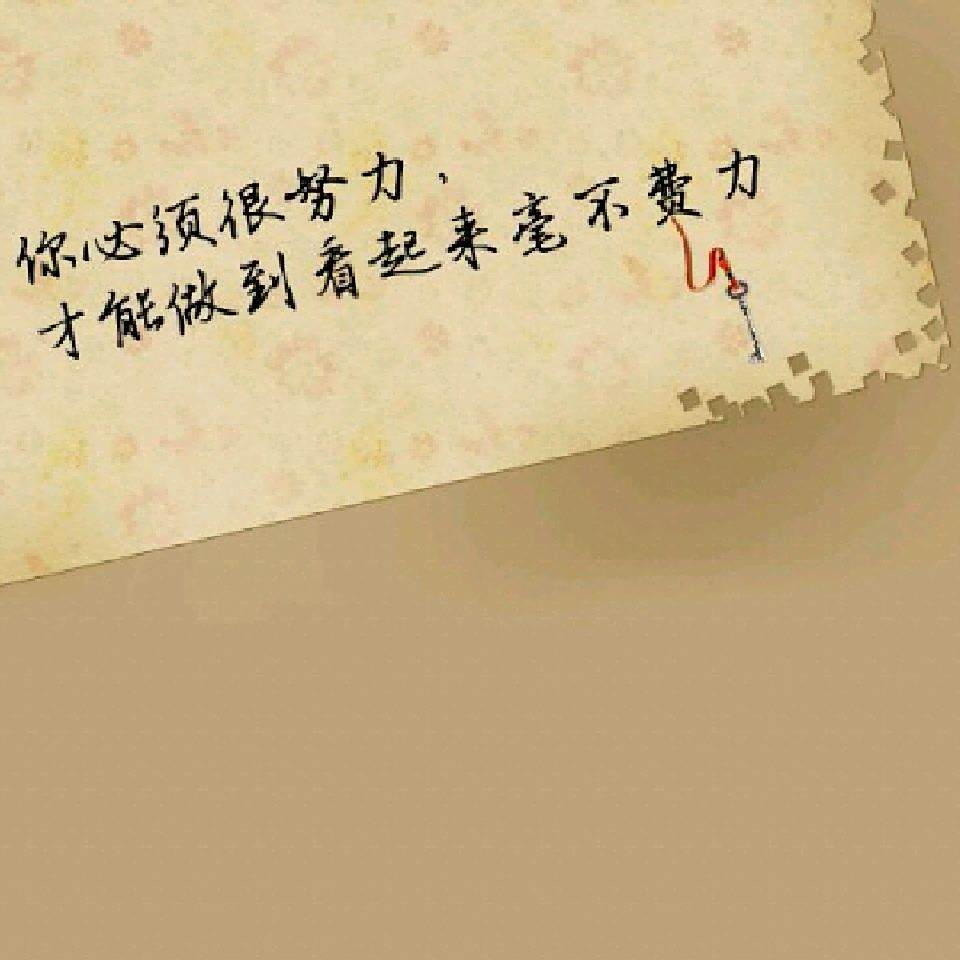 你必须很努力，
才能做到看起来毫不费力